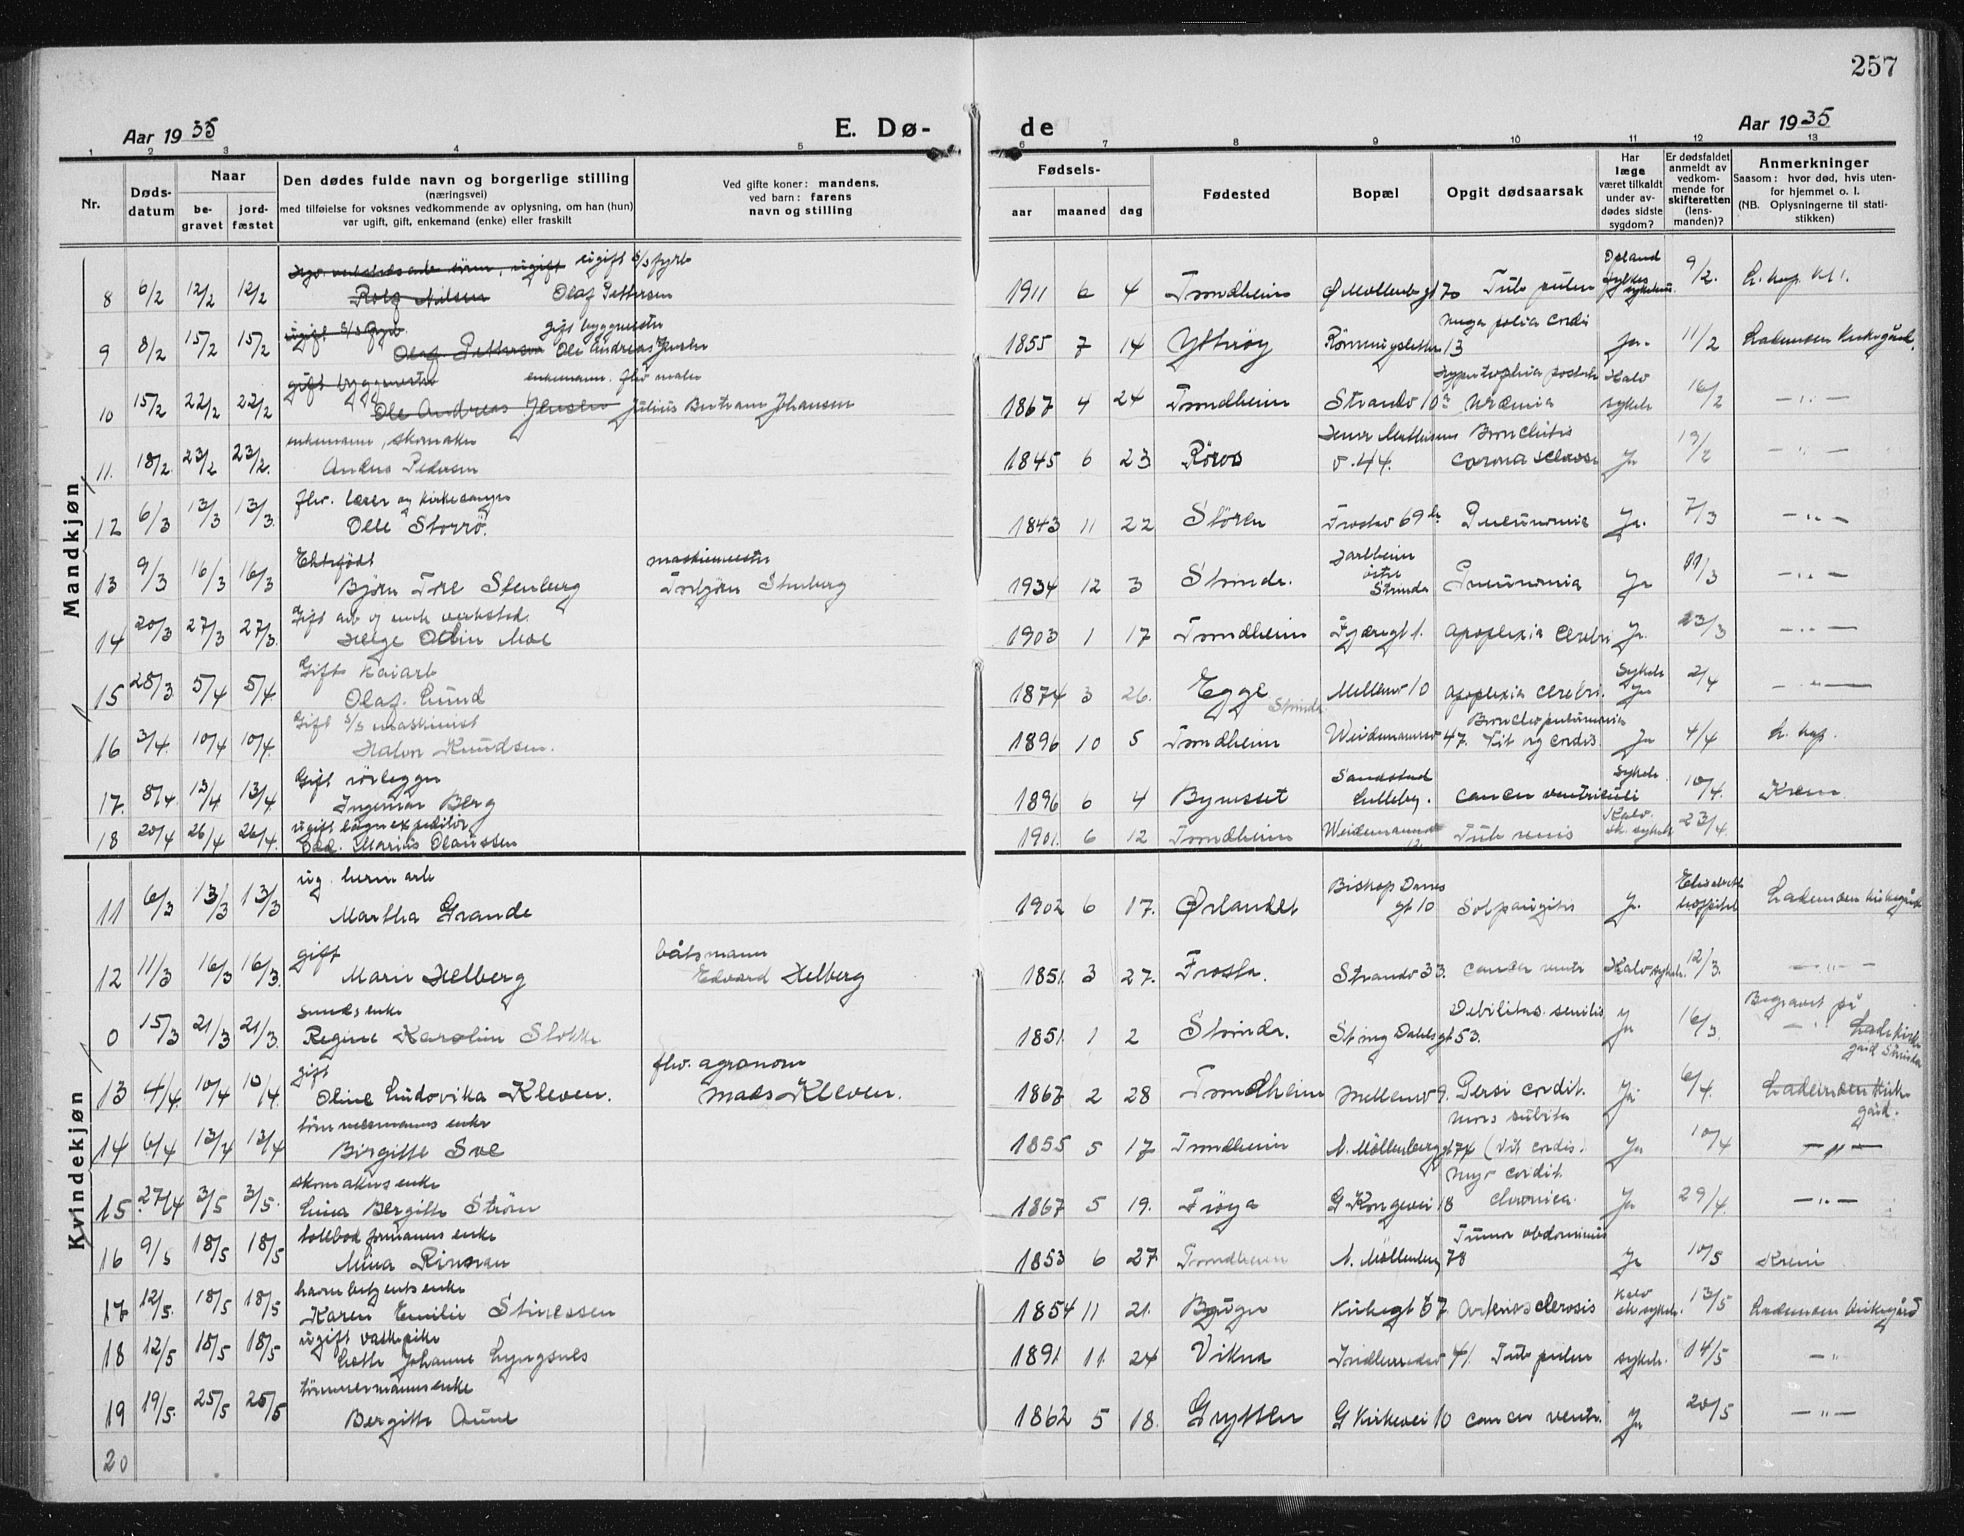 257
Aar 1935
E. Dø-
de
Aar 1935
1 2 3 4 5 6 7 8 9 10 11 12 13
Nr.
Døds-
datum
Naar
be-
gravet
jord-
fæstet
Den dødes fulde navn og borgerlige stilling
(næringsvei)
med tilføielse for voksnes vedkommende av oplysning, om han (hun)
var ugift, gift, enkemand (enke) eller fraskilt
Ved gifte koner: mandens,
ved barn: farens
navn og stilling
Fødsels-
aar
maaned
dag
Fødested
Bopæl
Opgit dødsaarsak
Har
læge
været tilkaldt
under av-
dødes sidste
sygdom?
Er dødsfaldet
anmeldt av
vedkom-
mende for
skifteretten
(lens-
manden)?
Anmerkninger
Saasom: hvor død, hvis uten-
for hjemmet o. l.
(NB. Oplysningerne til stati-
stikken)
Mandkjøn
ugift s/s fyrb
8 6/2 12/2 12/2 Rolf Nilsen Olaf Pettersen 1911 6 4 Trondheim Ø Møllenbgt 70 Tub pulm 9/2.
ugift s/s fyrb. gift byggmester
9 8/2 15/2 15/2 Olaf Pettersen Ole Andreas Jensen 1855 7 14 Ytterøy 13 Ja. 11/2 Lademoen kirkegård.
gift byggmester enkemann. fhv maler
10 15/2 22/2 22/2 Ole Andreas Jensen Julius Bertram Johansen 1867 4 24 Trondheim Strandv 10a Uræmia sykeh 16/2 — „ —
enkemann, skomaker Bronchitis
11. 18/2 23/2 23/2. Anders Pedersen 1845 6 23 Röros v. 44. Ja 19/2 — „ —
fhv. lærer og kirkesanger
12 6/3 13/3 13/3. Olle Storrö. 1843 11 22 Stören 69 b. Pneumonia Ja. 7/3 — „ —
Ektefödt maskinmester Jarlheim östre Strinda
13 9/3 16/3 16/3 Björn Tore Stenberg Torbjörn Stenberg 1934 12 3 Strinda. Pneumonia Ja 11/3 — „ —
Gift arb
14 20/3 27/3 27/3. Helge Odin Moe 1903 1 17 Trondheim Fjæregt 1. apoplexia cerebri Ja. 23/3 — „ —
Gift kaiarb
15 28/3 5/4 5/4. Olaf Lund 1874 3 26. Egge Mellemv 10 apoplexia cerebri. Sykeh Ja 2/4 — „ —
Gift s/s maskinist Strinda Bronchopneumonia
16 3/4. 10/4 10/4. Halvor Knudsen. 1896 10 5 Trondheim Weidemannsv 47. Vit org cordis. Ja 4/4
Gift rörlegger Sandstad Sykeh
17. 8/4. 13/4 13/4. Ingemar Berg 1896 6 4 Bynesset Lilleby. cancer ventriculi 10/4. Krem
ugift lagerexpeditör
18 20/4 26/4 26/4. Odd. Marius Olaussen 1901. 6 12 Trondheim Weidemannsv 12 Tub renis sykeh 23/4.
Kvindekjøn
ug. Biskop Darres Elisabeth
11 6/3 13/3 13/3 Martha Grande 1902 6 17. Ørlandet gt 10 Salpingitis Ja. hospital Lademoen kirkegård
gift båtsmann
12 11/3 16/3 16/3. Marie Helberg Edvard Helberg 1851. 3 27. Frosta. Strandv 33. cancer ventr Halv sykeh. 12/3. — „ —
smeds enke Debilitas senilis Begravet på
0 15/3 21/3 21/3. Regine Karoline Slokke. 1851. 1 2 Strinda. Sting Dahls gt 53. Ja 16/3 Lade kirkegård Strinda
gift fhv. agronom
13 4/4. 10/4 10/4. Oline Ludovika Kleven. Mads Kleven. 1867 2 28 Trondheim Mellemv 9. Ja 6/4. Lademoen kirkegård.
tömmermanns enke Mors subita
14 6/4 13/4 13/4 Birgitte Sve 1855 5 17 Trondheim N. Möllenberg gt 74 (Vit cordis. Ja 10/4 — „ —
skomakers enke Myocardit
15 27/4 3/5 3/5. Lina Bergitte Ström 1867 5 19. Fröya G Kongevei 18 chronica. Ja 29/4. — „ —
tollbod formanns enke Tumor abdominis
16 9/5 18/5 18/5 Mina Rinnan 1853 6 27 Trondheim N. Möllenberg 78 Ja 10/5 Krem
havnebetjents enke
17 12/5. 18/5 18/5 Karen Emilie Stinessen 1854 11 21. Bjugn Kirkegt 67 Arteriosclerosis Halv sykeh. 13/5 Lademoen kirkegård
ugift vaskepike
18 12/5 18/5 18/5 Lotte Johanne Lyngsnes 1891 11. 24 Vikna 41. Tub pulm sykeh. 14/5 — „
tömmermanns enke
19 19/5. 25/5 25/5 Bergitte Aune 1862 5 18. Grytten G Kirkevei 10 cancer ventr. Ja 20/5 — „ —
20